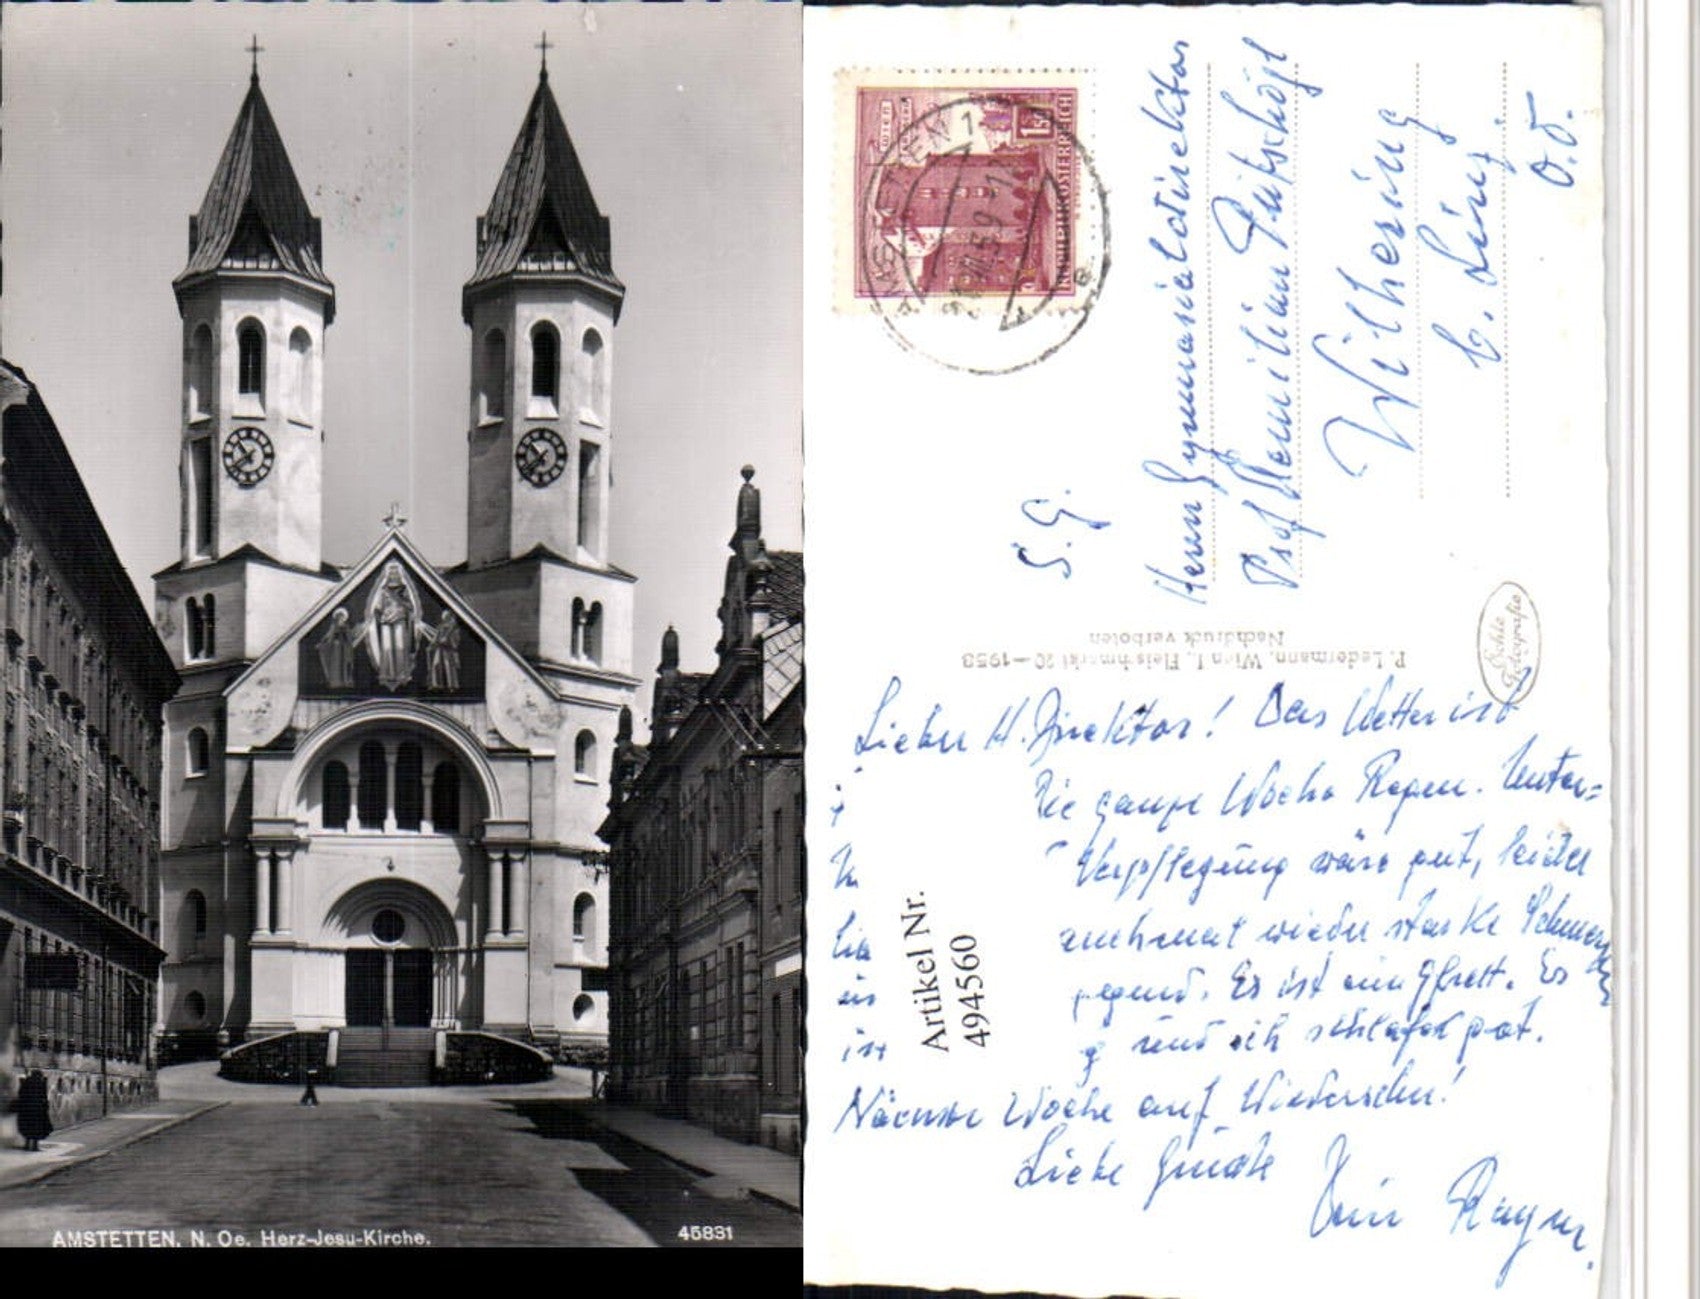 AMSTETTEN. N. Oe. Herz-Jesu-Kirche.
45831
WIEN
1.50
REPUBLIK ÖSTERREICH
AMSTETTEN 1
S. G.
Herrn Gymnasialdirektor
Prof
Wilhering
b. Linz.
O.Ö.
P. Ledermann, Wien I., Fleischmarkt 20 — 1953
Nachdruck verboten
Echte
Fotografie
Lieber H. Direktor! Das Wetter ist
die ganze Woche Regen. Unter=
Verpflegung wäre gut, leider
wieder starke Schmerzen
Es ist ein Gfrett. Es
und ich schlafe gut.
ist
Artikel Nr.
494560
Nächste Woche auf Wiedersehn!
Liebe Grüße
Dein